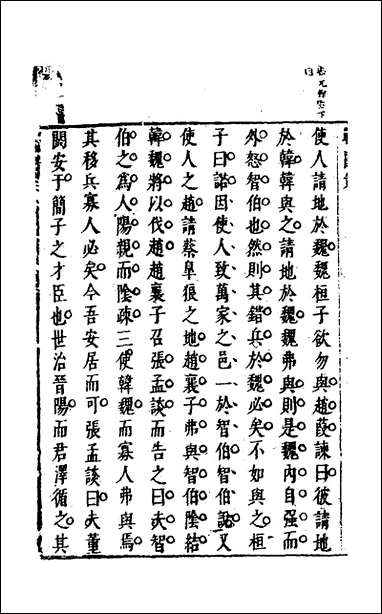 使人請地於魏魏桓子欲勿與趙葭諫曰彼請地
於韓韓與之請地於魏魏弗與則是魏內自强而
外怒智伯也然則其錯兵於魏必矣不如與之桓
子曰諾因使人致萬家之邑一於智伯智伯說又
使人之趙請蔡皐狼之地趙襄子弗與智伯陰結
韓魏將以伐趙趙襄子召張孟談而告之曰夫智
伯之爲人陽親而陰疎三使韓魏而寡人弗與焉
其移兵寡人必矣今吾安居而可張孟談曰夫董
閼安于簡子之才臣也世治晉陽而君澤循之其